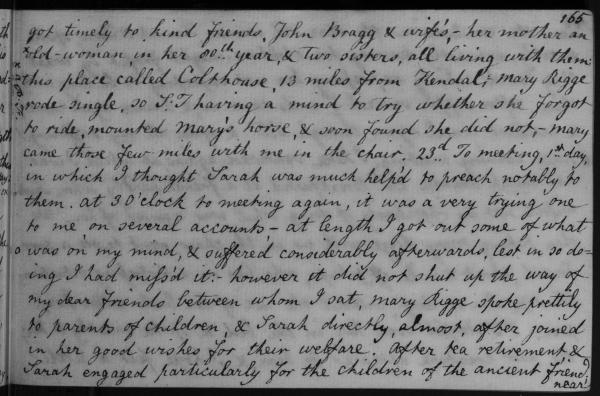 165
got timely to kind friends, John Bragg & wife's,- her mother an
old-woman in her 80th year, & two sisters, all living with them:
this place called Colthouse, 13 miles from Kendal;- Mary Rigge
rode single, so S:T having a mind to try whether she forgot
to ride, mounted Mary's horse, & soon found she did not,- Mary
came those few miles with me in the chair. 23.d To meeting, 1st day,
in which I thought Sarah was much help'd to preach notably to
them. at 3 o'clock to meeting again, it was a very trying one
to me on several accounts- at length I got out some of what
was on my mind, & suffered considerably afterwards, lest in so do-
ing I had miss'd it:- however it did not shut up the way of
my dear friends between whom I sat, Mary Rigge spoke prettily
to parents of children, & Sarah directly, almost, after joined
in her good wishes for their welfare. After tea retirement &
Sarah engaged particularly for the children of the ancient friend
near